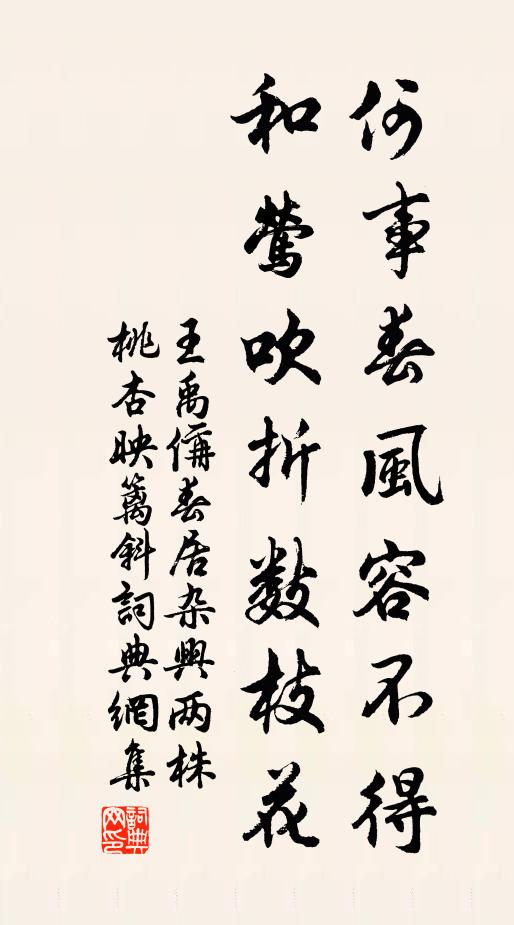 何事春風容不得
和鶯吹折数枝花
王禹偁春居杂興两株
桃杏映篱斜詞典網集
詞典網印